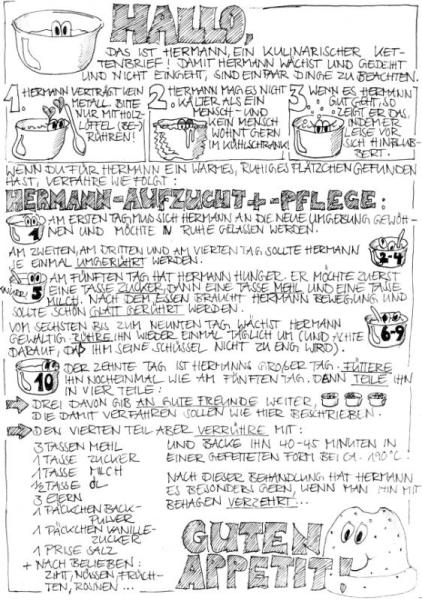 HALLO,
DAS IST HERMANN, EIN KULINARISCHER KET-
TENBRIEF! DAMIT HERMANN WÄCHST UND GEDEIHT
UND NICHT EINGEHT, SIND EIN PAAR DINGE ZU BEACHTEN.
1. HERMANN VERTRÄGT KEIN
METALL. BITTE
NUR MIT HOLZ-
LÖFFEL (BE-)
RÜHREN!
2. HERMANN MAG ES NICHT
KÄLTER ALS EIN
MENSCH - UND
KEIN MENSCH
WOHNT GERN
IM KÜHLSCHRANK!
3. WENN ES HERMANN
GUT GEHT, SO
ZEIGT ER DAS,
INDEM ER
LEISE VOR
SICH HINBLUB-
BERT.
WENN DU FÜR HERMANN EIN WARMES, RUHIGES PLÄTZCHEN GEFUNDEN
HAST, VERFAHRE WIE FOLGT:
HERMANN-AUFZUCHT + -PFLEGE:
1 AM ERSTEN TAG MUSS SICH HERMANN AN DIE NEUE UMGEBUNG GEWÖH-
NEN UND MÖCHTE IN RUHE GELASSEN WERDEN.
AM ZWEITEN, AM DRITTEN UND AM VIERTEN TAG SOLLTE HERMANN
JE EINMAL UMGERÜHRT WERDEN. 2-4
5 AM FÜNFTEN TAG HAT HERMANN HUNGER. ER MÖCHTE ZUERST
EINE TASSE ZUCKER, DANN EINE TASSE MEHL UND EINE TASSE
MILCH. NACH DEM ESSEN BRAUCHT HERMANN BEWEGUNG UND
SOLLTE SCHÖN GLATT GERÜHRT WERDEN.
VOM SECHSTEN BIS ZUM NEUNTEN TAG WÄCHST HERMANN
GEWALTIG. RÜHRE IHN WIEDER EINMAL TÄGLICH UM (UND ACHTE
DARAUF, DAß IHM SEINE SCHÜSSEL NICHT ZU ENG WIRD). 6-9
10 DER ZEHNTE TAG IST HERMANNS GROßER TAG. FÜTTERE
IHN NOCHEINMAL WIE AM FÜNFTEN TAG. DANN TEILE IHN
IN VIER TEILE:
DREI DAVON GIB AN GUTE FREUNDE WEITER,
DIE DAMIT VERFAHREN SOLLEN WIE HIER BESCHRIEBEN.
DEN VIERTEN TEIL ABER VERRÜHRE MIT:
3 TASSEN MEHL
1 TASSE ZUCKER
1 TASSE MILCH
½ TASSE ÖL
3 EIERN
1 PÄCKCHEN BACK-
PULVER
1 PÄCKCHEN VANILLE-
ZUCKER
1 PRISE SALZ
+ NACH BELIEBEN:
ZIMT, NÜSSEN, FRÜCH-
TEN, ROSINEN...
UND BACKE IHN 40-45 MINUTEN IN
EINER GEFETTETEN FORM BEI CA. 190°C!
NACH DIESER BEHANDLUNG HAT HERMANN
ES BESONDERS GERN, WENN MAN IHN MIT
BEHAGEN VERZEHRT...
GUTEN
APPETIT!